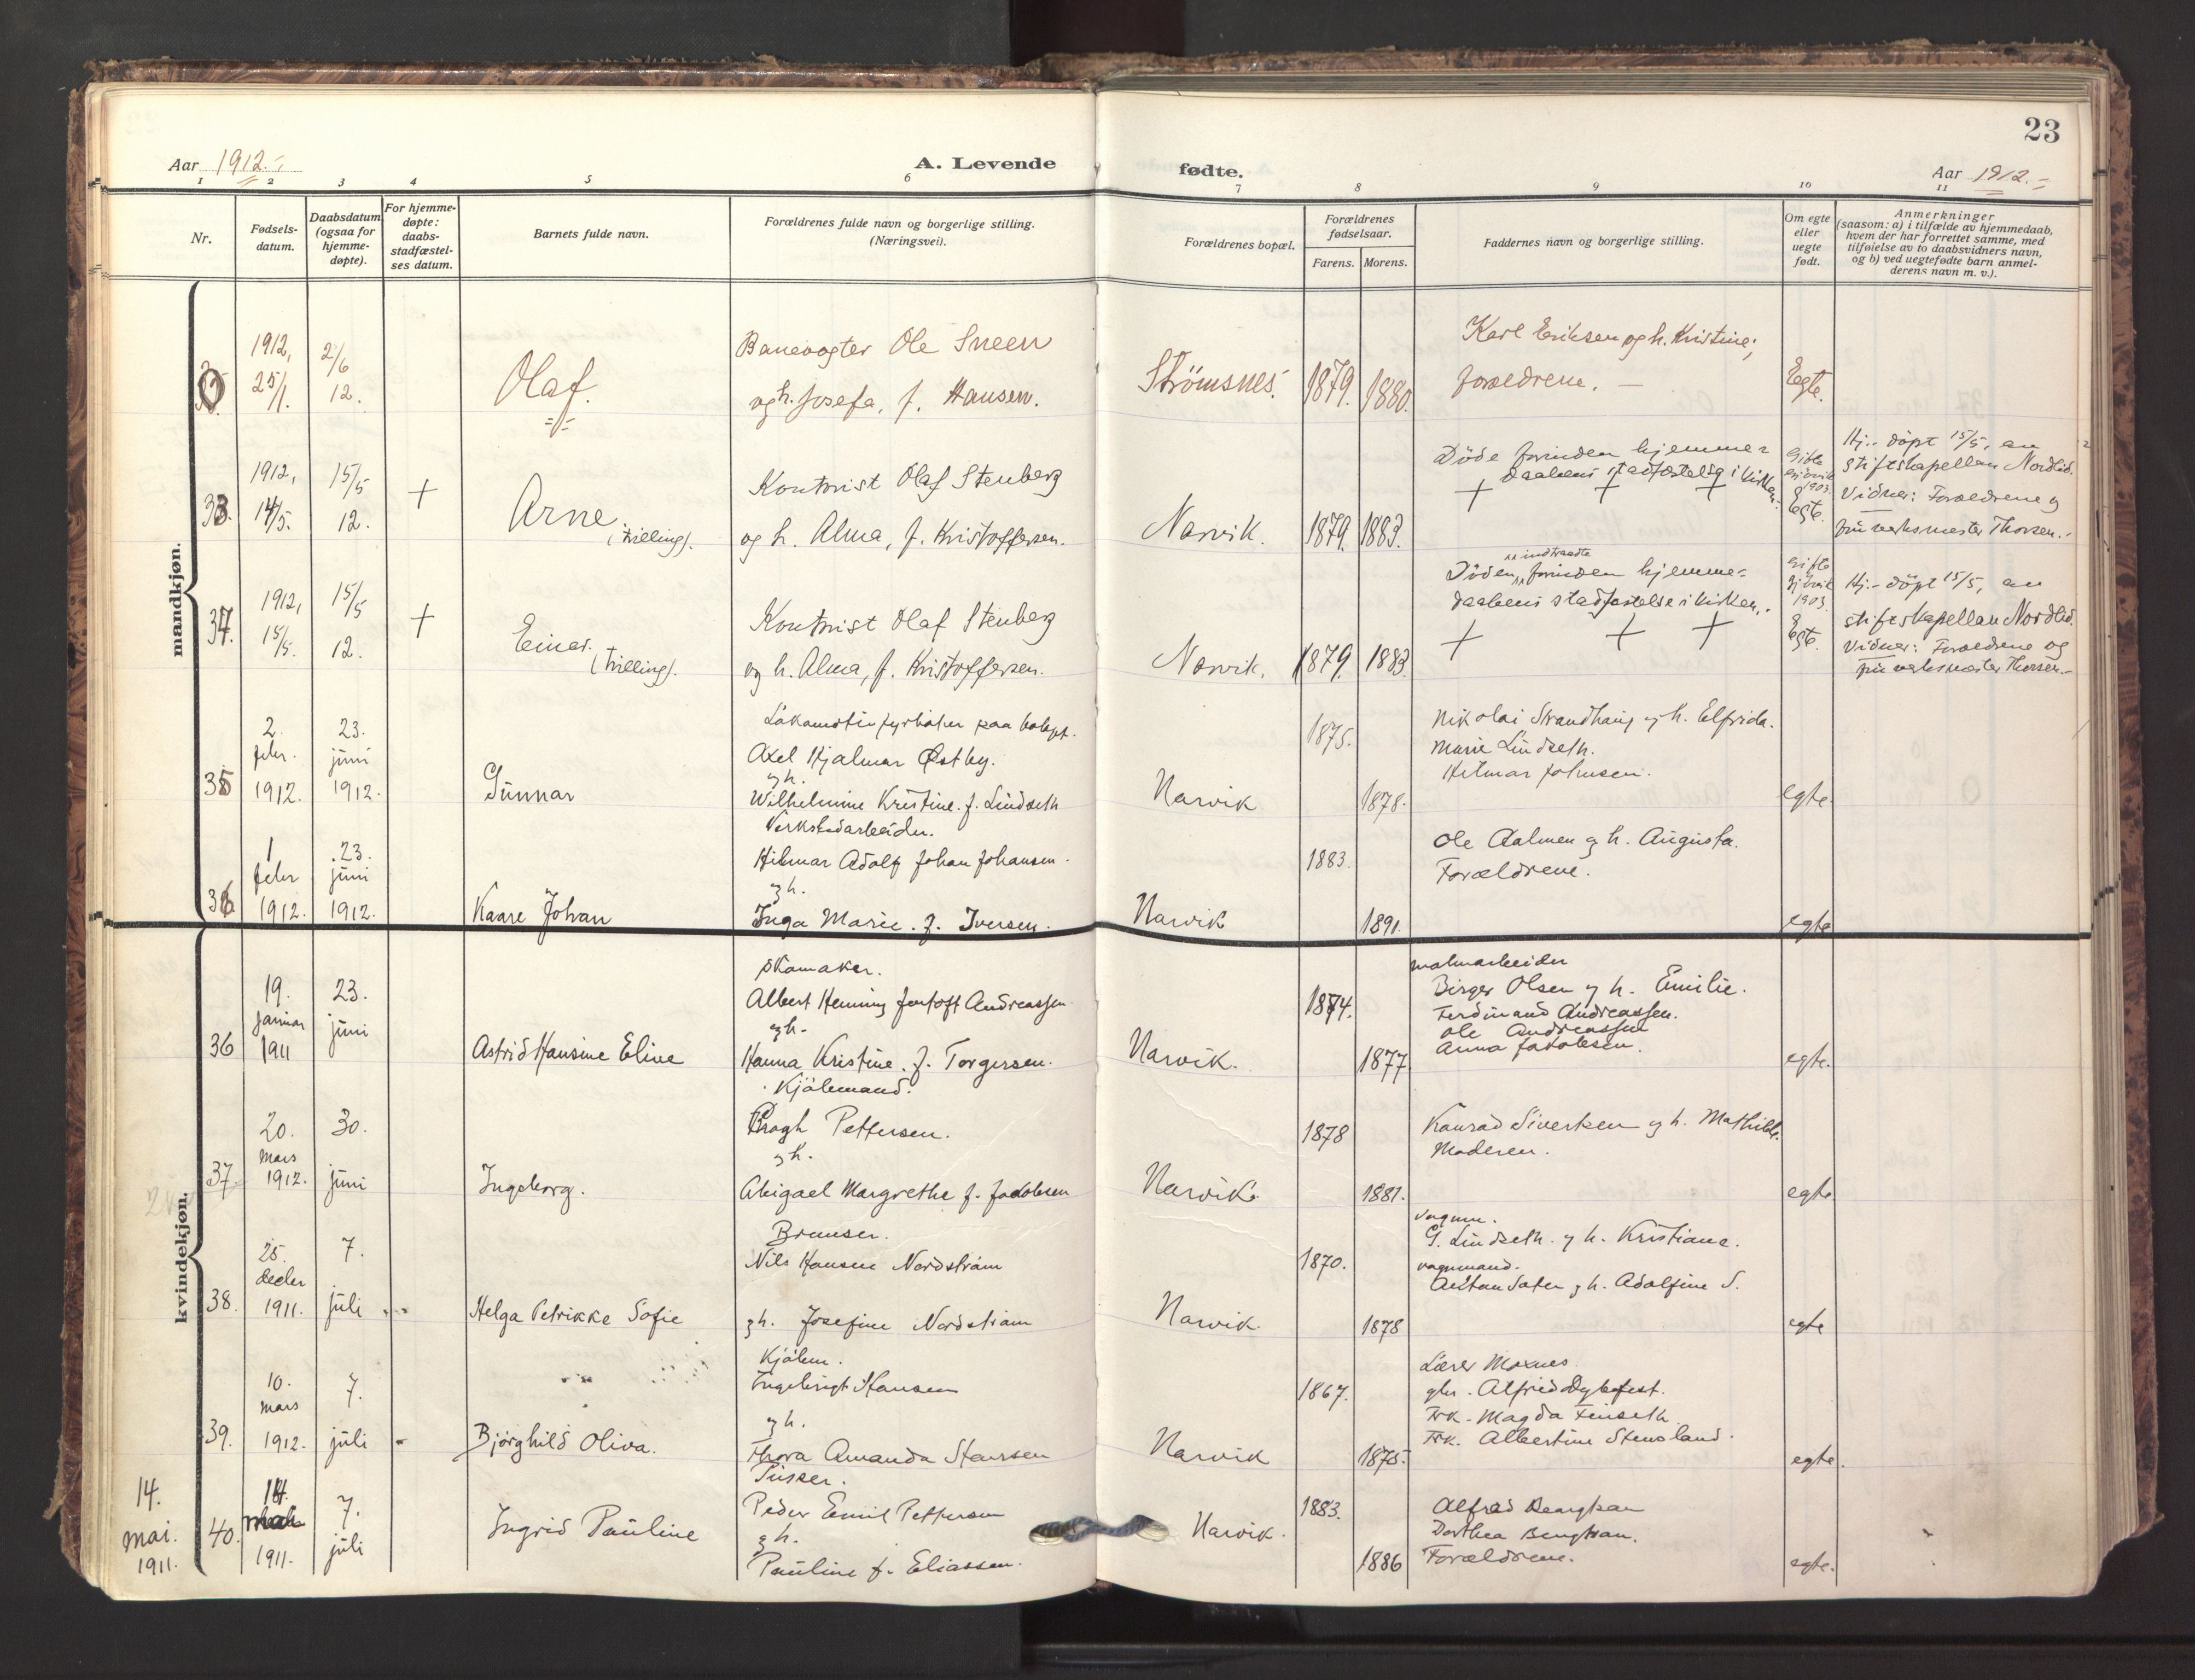 23
Aar 1912.
A. Levende
fødte.
Aar 1912.
1 2 3 4 5 6 7 8 9 10 11
Nr.
Fødsels-
datum.
Daabsdatum
(ogsaa for
hjemme-
døpte).
For hjemme-
døpte:
daabs-
stadfæstel-
ses datum.
Barnets fulde navn.
Forældrenes fulde navn og borgerlige stilling.
(Næringsvei).
Forældrenes bopæl.
Forældrenes
fødselsaar.
Farens. Morens.
Faddernes navn og borgerlige stilling.
Om egte
eller
uegte
født.
Anmerkninger
(saasom: a) i tilfælde av hjemmedaab,
hvem der har forrettet samme, med
tilføielse av to daabsvidners navn,
og b) ved uegtefødte barn anmel-
derens navn m. v.).
mandkjøn.
1912,
25/1.
2/6
12.
Olaf.
Banevogter Ole Sneen
og h. Josefa, f. Hansen.
Strømsnes.
1879. 1880.
Karl Eriksen og h. Kristine;
forældrene.
Egte.
33.
1912,
14/5.
15/5
12.
+
Arne
(trilling).
Kontorist Olaf Stenberg
og h. Alma, f. Kristoffersen.
Narvik.
1879. 1883.
Døde forinden hjemme-
daabens stadfæstelse i kirken.
+ + +
Gifte
Gjøvik
1903.
Egte.
Hj.- døpt 15/5, av
stiftskapellan Nordlid.
Vidner: Forældrene og
fru verksmester Thorsen.
34.
1912,
15/5.
15/5
12.
+
Einar.
(trilling).
Kontorist Olaf Stenberg
og h. Alma, f. Kristoffersen.
Narvik.
1879. 1883.
indtraadte
Døden forinden hjemme-
daabens stadfæstelse i kirken.
+ + +
Gifte
Gjøvik
1903.
Egte.
Hj.- døpt 15/5, av
stiftskapellan Nordlid.
Vidner: Forældrene og
fru verksmester Thorsen.
35
2.
febr.
1912.
23.
juni
1912.
Gunnar
Axel Hjalmar Østby.
og h.
Wilhelmine Kristine. f. Lindseth
Narvik
1875.
1878.
Nikolai Strandhaug og h. Elfrida.
Marie Lindseth.
Hilmar Johnsen.
egte.
36
1
febr
1912.
23.
juni
1912.
Kaare Johan
Verkstedarbeider.
Hilmar Adolf Johan Johansen.
og h.
Inga Marie. f. Iversen.
Narvik
1883.
1891.
Ole Aalmen og h. Augusta.
Forældrene.
egte
kvindekjøn.
36
19.
januar
1911
23.
juni
Astrid Hansine Eline
Skomaker.
Albert Henning Jentoft Andreassen
og h.
Hanna Kristine. f. Torgersen.
Narvik.
1874.
1877
malmarbeider
Birger Olsen og h. Emilie.
Ferdinand Andreassen.
Ole Andreassen
Anna Jakobsen.
egte.
37.
20.
mars
1912.
30.
juni
Ingeborg.
Kjølemand.
Pettersen.
og h.
Abigael Margrethe f. Jakobsen
Narvik
1878
1881.
Konrad Sivertsen og h. Mathilde.
Moderen.
egte
38.
25.
decbr
1911.
7.
juli
Helga Petrikke Sofie
Bremser.
Nils Hansen Nordstrøm
og h. Josefine Nordstrøm
Narvik
1870.
1878
vognm.
G. Lindseth. og h. Kristiane.
vognmand.
Anton Sater og h. Adolfine S.
egte
39.
10.
mars
1912.
7.
juli
Bjørghild Oliva.
Kjølem.
Ingebrigt Hansen
og h.
Thora Amanda Hansen
Narvik
1867.
1875.
Lærer Moxnes.
gbr. Alfred Dybfest.
Frk. Magda Finseth
Frk. Albertine Stensland.
egte.
14.
mai.
1911.
40.
14.
1911.
7.
juli
Ingrid Pauline
Pusser.
Peder Emil Pettersen
og h.
Pauline f. Eliassen.
Narvik.
1883.
1886
Alfred Bengtson
Dorthea Bengtson.
Forældrene.
egte.